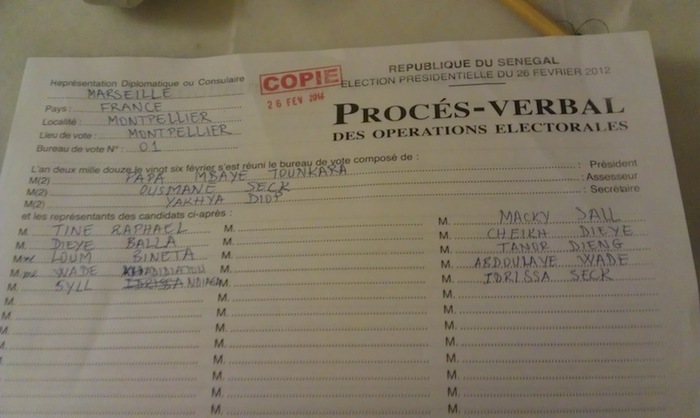 REPUBLIQUE DU SENEGAL
ELECTION PRESIDENTIELLE DU 26 FEVRIER 2012
COPIE
26 FEV
Représentation Diplomatique ou Consulaire
MARSEILLE
Pays : FRANCE
Localité : MONTPELLIER
Lieu de vote : MONTPELLIER
Bureau de vote N° : 01
PROCÉS-VERBAL
DES OPERATIONS ELECTORALES
L'an deux mille douze le vingt six février s'est réuni le bureau de vote composé de :
M(2) PAPA MBAYE TOUNKARA : Président
M(2) OUSMANE SECK : Assesseur
M(2) YAKHYA DIOP : Secrétaire
et les représentants des candidats ci-après :
M. TINE RAPHAEL M. MACKY SALL
M. DIEYE BALLA M. CHEIKH DIEYE
Mme LOUM BINETA M. TANOR DIENG
M WADE KHADIDIATOU M. ABDOULAYE WADE
M. SYLL NDIAGA M. IDRISSA SECK
M. M. M.
M. M. M.
M. M. M.
M. M. M.
M. M. M.
M. M.